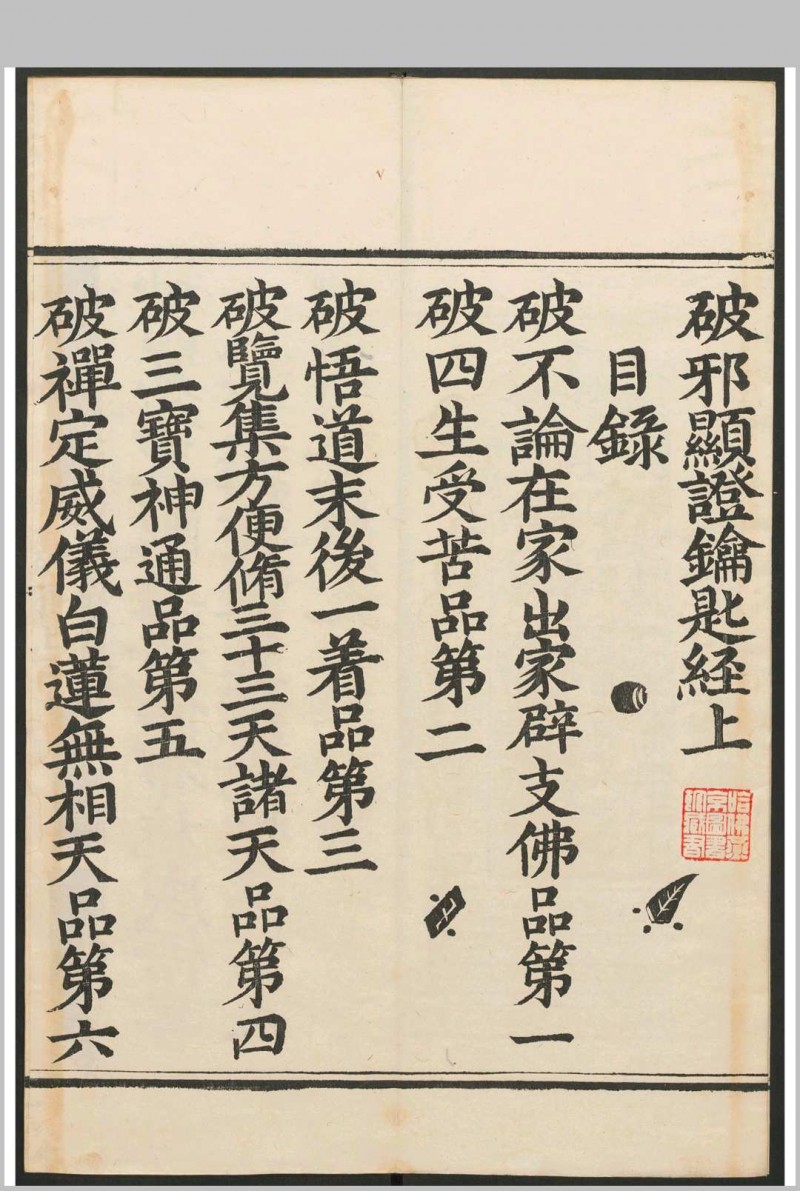 破邪顯證鑰匙経上
目錄
破不論在家出家辟支佛品第一
破四生受苦品第二
破悟道末後一着品第三
破覽集方便脩三十三天諸天品第四
破三寶神通品第五
破禪定威儀白蓮無相天品第六